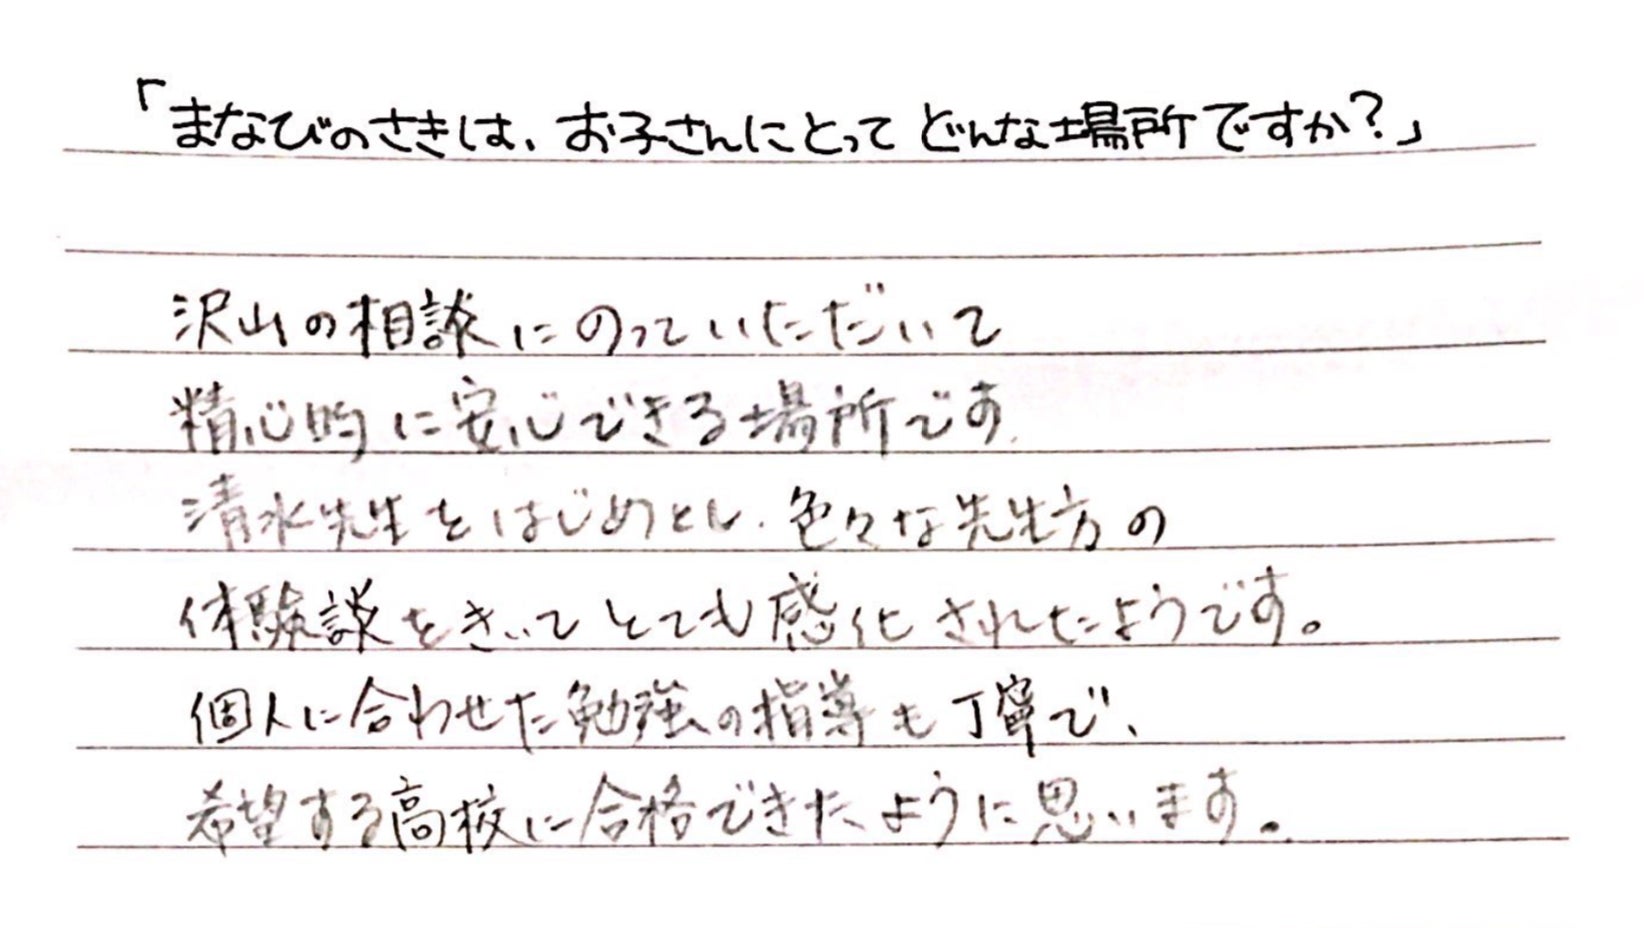 「まなびのさきは、お子さんにとってどんな場所ですか?」
沢山の相談にのっていただいて
精心的に安心できる場所です.
清水先生をはじめとし、色々な先生方の
体験談をきいてとても感化されたようです。
個人に合わせた勉強の指導も丁寧で、
希望する高校に合格できたように思います。